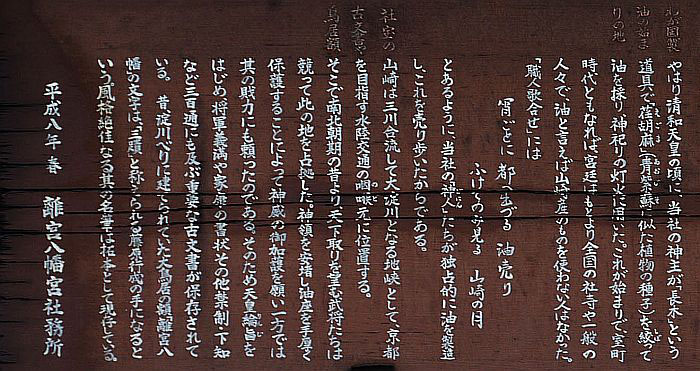 我が国製
油の始ま
りの地
やはり清和天皇の頃に、当社の神主が「長木」という
道具で、荏胡麻(青紫蘇に似た植物の種子)を絞って
油を採り神祀りの灯火に用いた。これが始まりで、室町
時代ともなれば、宮廷はもとより全国の社寺や一般の
人々で、油と言えば山崎産のものを使わない人はなかった。
「職人歌合せ」には
宵ごとに 都へ出づる 油売り
ふけてのみ見る 山崎の月
とあるように、当社の神人たちが独占的に油を製造
しこれを売り歩いたからである。
社宝の
古文書や
鳥居額
山崎は三川合流して大淀川となる地峡として、京都
を目指す水陸交通の咽喉元に位置する。
そこで南北朝期の昔より天下取りを望む武将たちは
競って此の地を占拠した。神領を安堵し油座を手厚く
保護することによって神威の御加護を願い一方では
其の財力にも頼ったのである。そのため天皇綸旨を
はじめ、将軍義満や家康の書状その他禁制・下知
など三百通にも及ぶ重要な古文書が保存されて
いる。 昔淀川べりに建てられていた大鳥居の額離宮八
幡の文字は、「三蹟」と称えられる藤原行成の手になると
いう風格絶佳なる其の名筆は社宝として現存している。
平成八年春 離宮八幡宮社務所